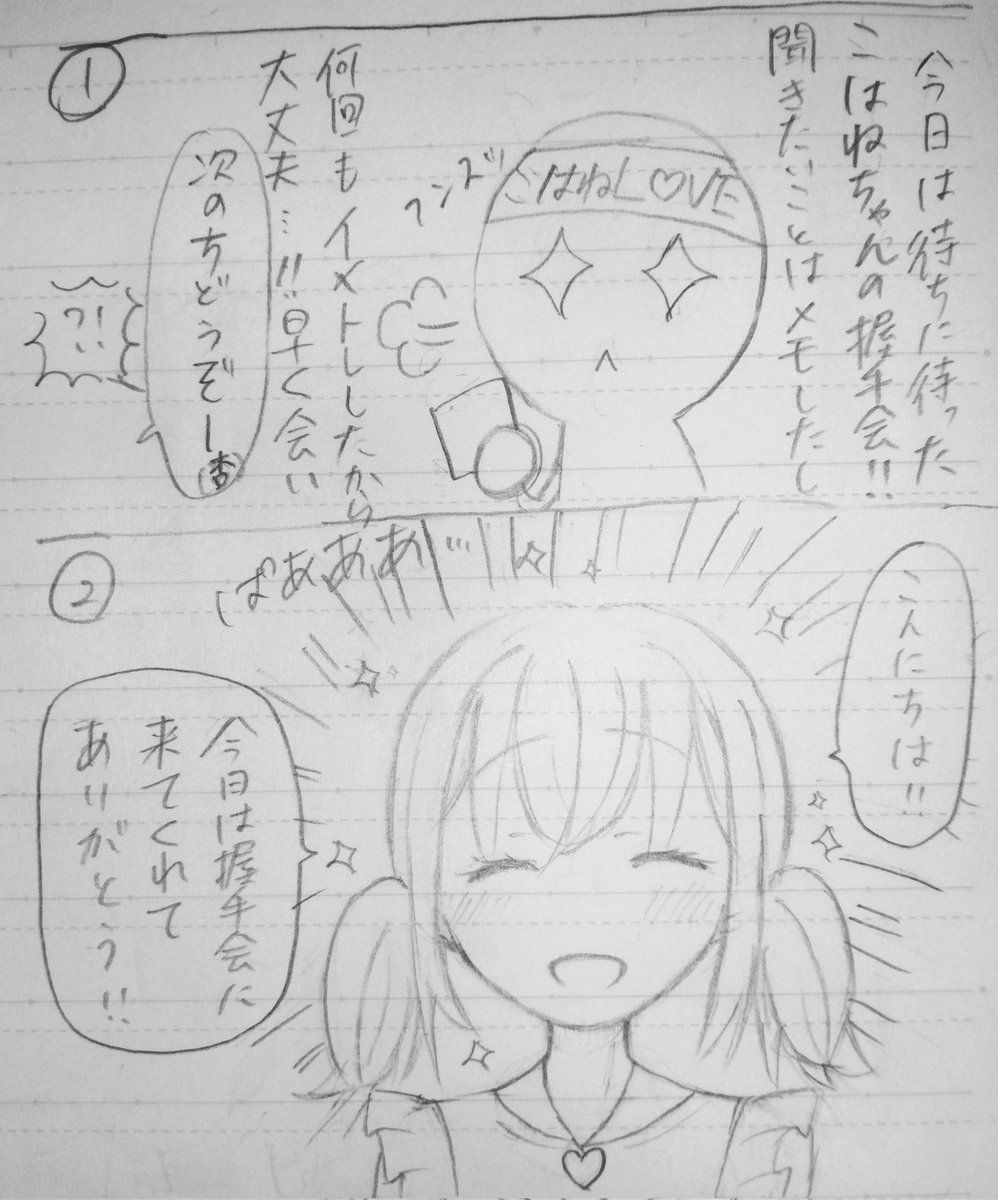 ①
今日は待ちに待った
こはねちゃんの握手会!!
聞きたいことはメモしたし
こはねL♡VE
何回もイメトレしたから
大丈夫…!!早く会い
次のちどうぞー
(杏)
?!
②
ぱあぁあぁ…
こんにちは!!
今日は握手会に
来てくれて
ありがとう!!